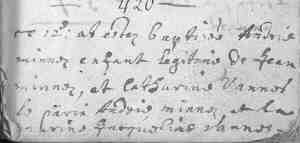 420
Le 12: at estez baptisé Andrié
minnez enfant legitime de Jean
minnez, at Catharine Vannes
le parin Andrié, minnez, et la
marine Jacqueline Vannes